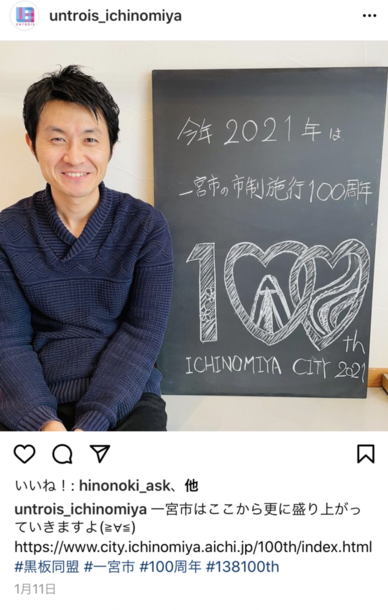 untrois_ichinomiya
今年2021年は
一宮市の市制施行100周年
100th
ICHINOMIYA CITY 2021
いいね！: hinonoki_ask、他
untrois_ichinomiya 一宮市はここから更に盛り上がっ
ていきますよ(≧∀≦)
https://www.city.ichinomiya.aichi.jp/100th/index.html
#黒板同盟 #一宮市 #100周年 #138100th
1月11日